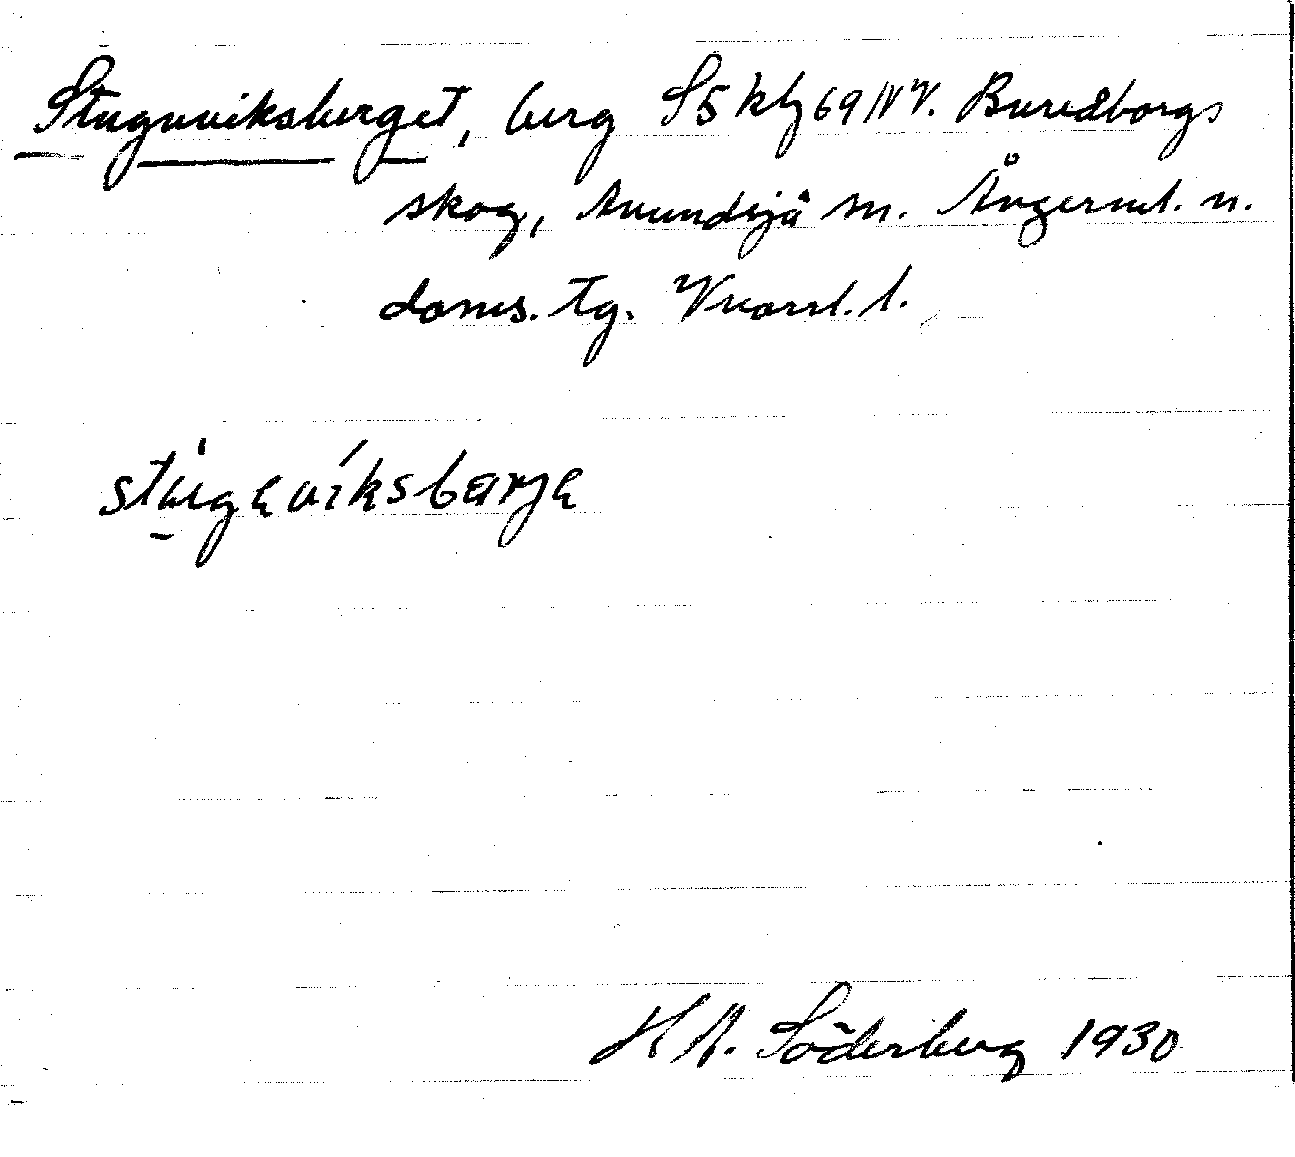 Stuguviksberget, berg S5 kbl 69 IV V. Buredborgs
skog, Anundsjö sn. Ångerml. n.
doms. tg. Vnorrl. l.
stúgɐvíksbærjɐ
H A. Söderberg 1930